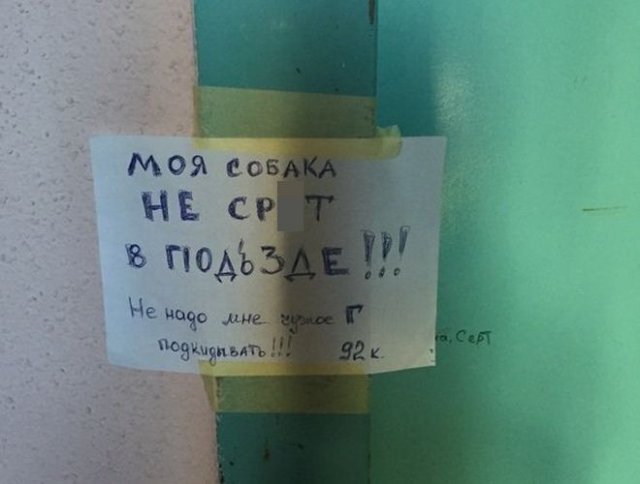 МОЯ СОБАКА
НЕ СР Т
В ПОДЪЗДЕ!!!
Не надо мне чужое Г
подкидывать!!! 92 к.